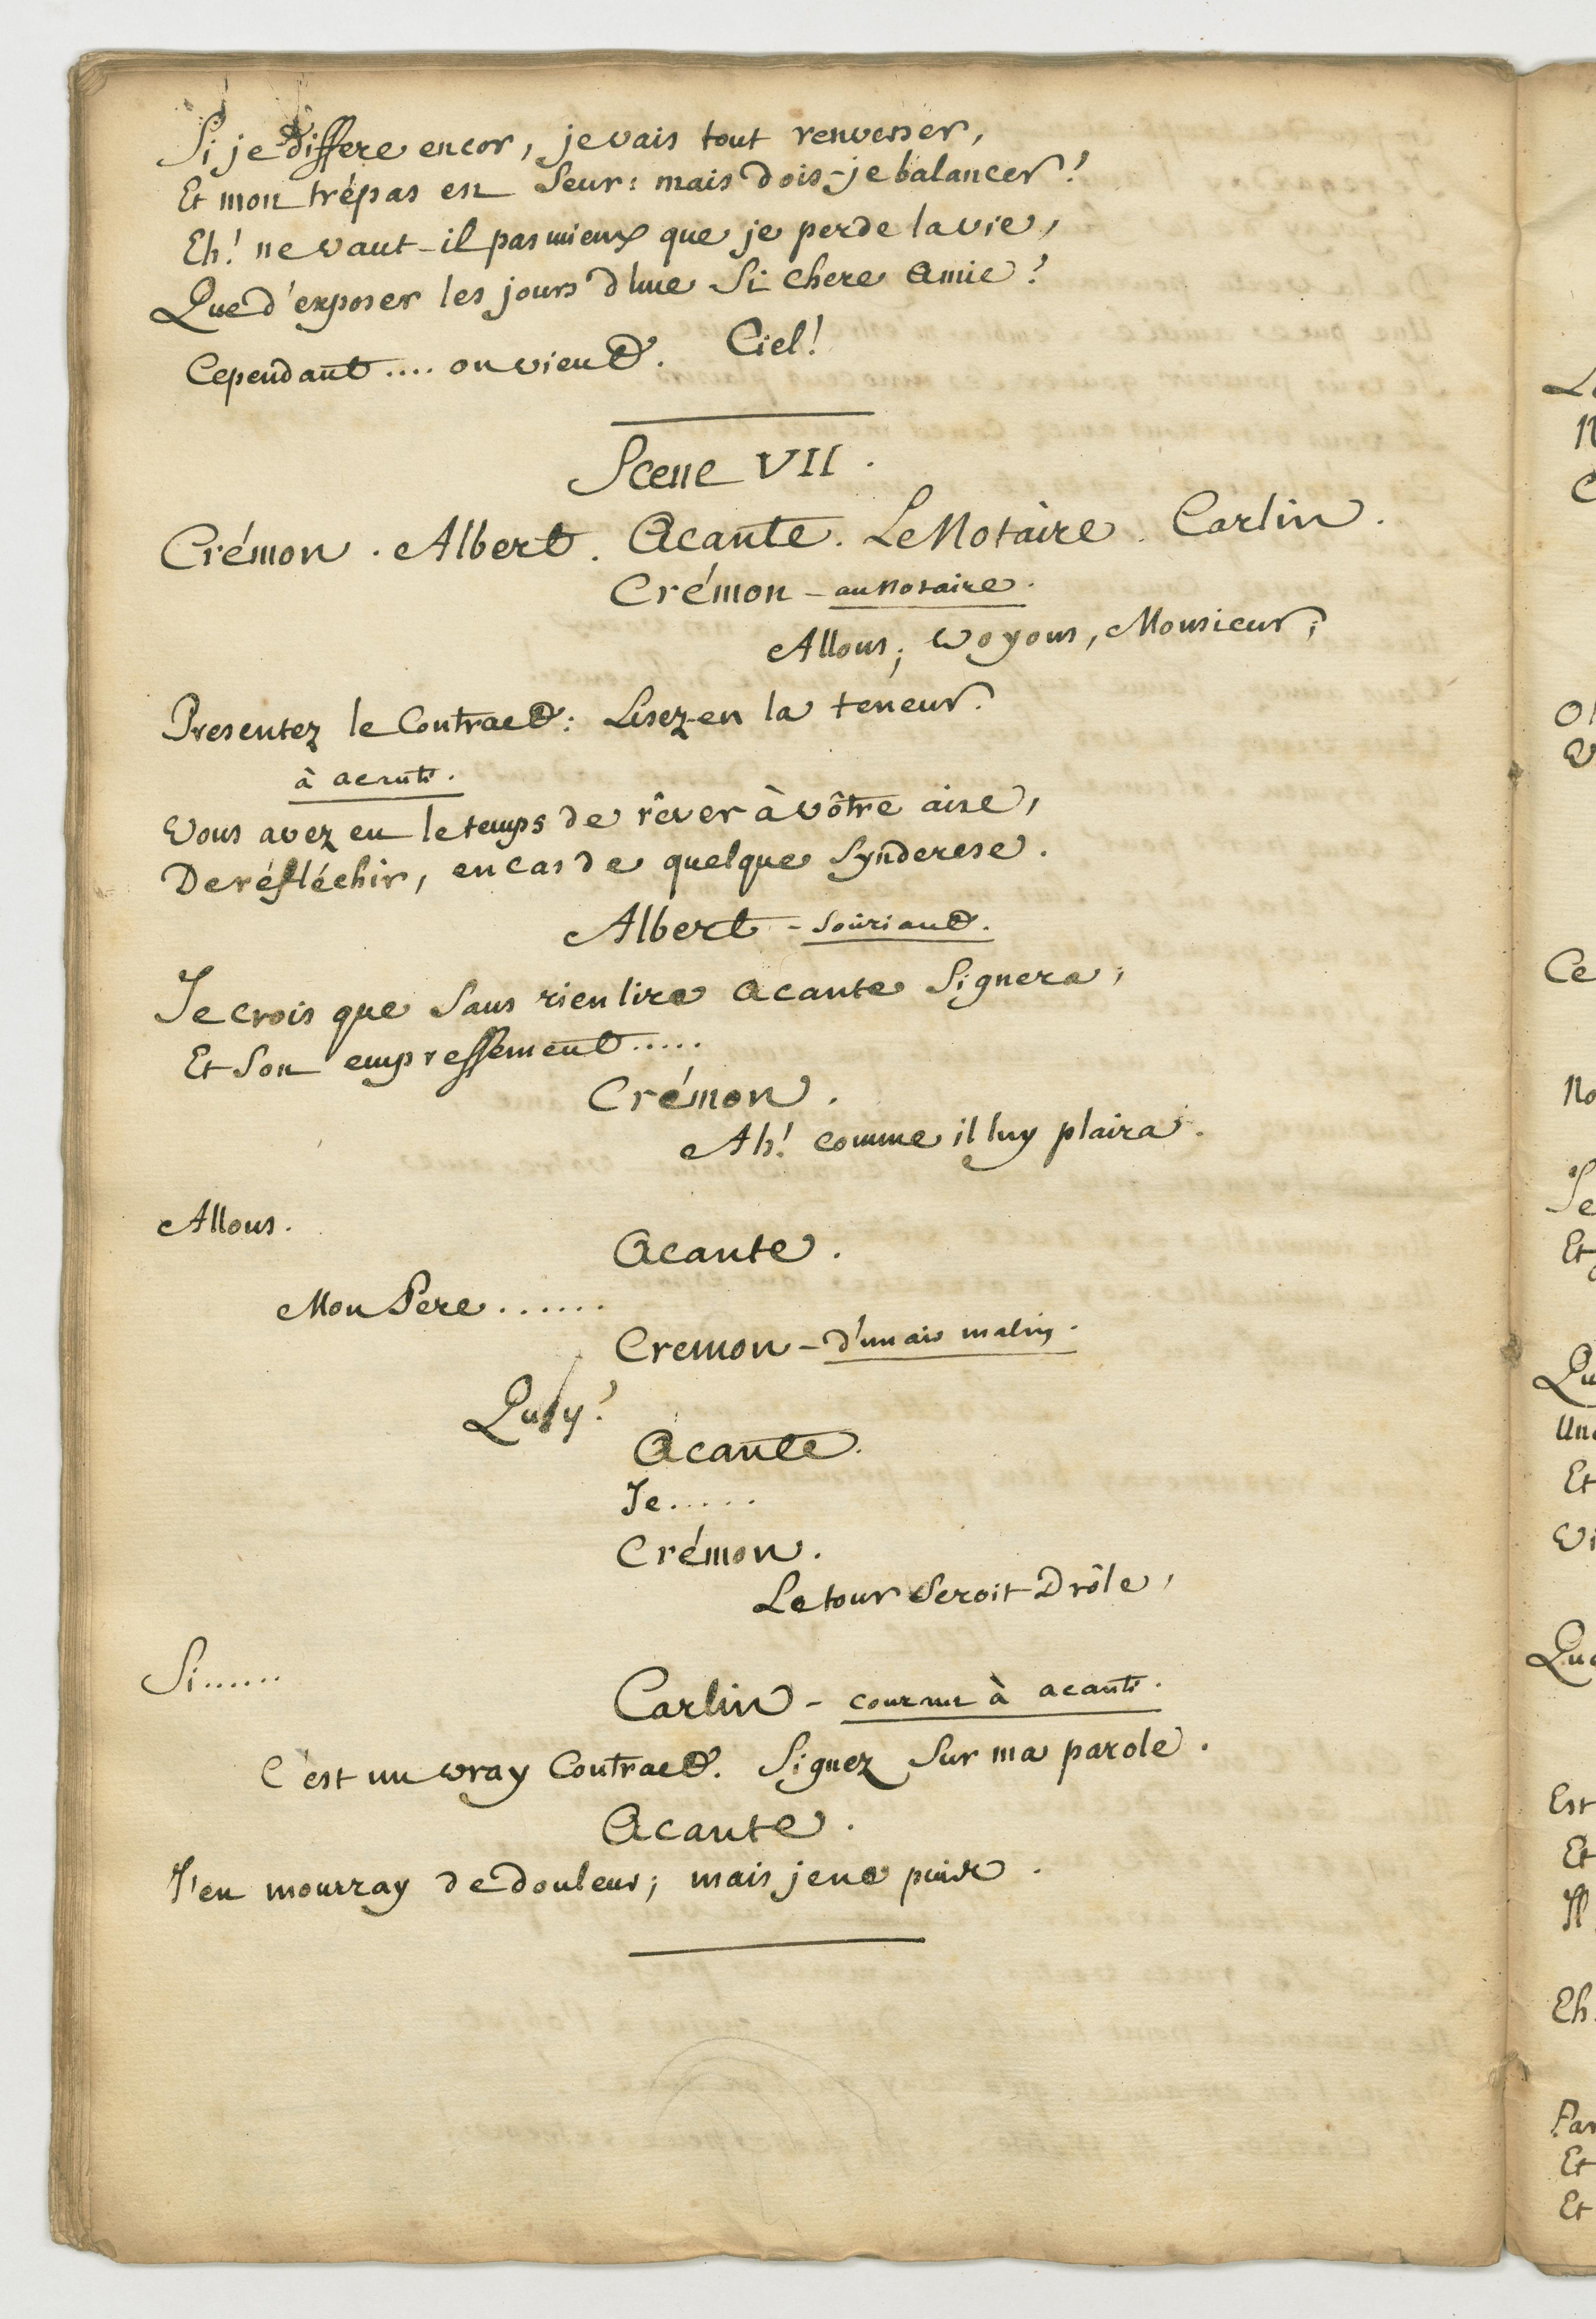 Si je differe encor, je vais tout renverser,
Et mon trépas est seur : mais dois-je balancer ?
Eh ! ne vaut-il pas mieux que je perde la vie,
Que d'exposer les jours d'une si chere amie ?
Cependant .... on vient. Ciel !
Scene VII.
Crémon. Albert. Acante. Le Notaire. Carlin.
Crémon - au notaire.
Allons ; voyons, Monsieur ;
Presentez le Contract : Lisez-en la teneur.
à acante.
Vous avez eu le temps de rêver à vôtre aise,
De réfléchir, en cas de quelque synderese.
Albert - souriant.
Je crois que sans rien lire acante signera ;
Et son empressement .....
Crémon.
Ah ! comme il luy plaira.
Allons.
Acante.
Mon Pere ......
Cremon - d'un air malin.
Quoy ?
Acante.
Je .....
Crémon.
Le tour seroit drôle,
Si ......
Carlin - courant à acante.
C'est un vray Contract. Signez sur ma parole.
Acante.
J'en mourray de douleur ; mais je ne puis
Qu
Un
Et
Vi
Est
Et
Il
Eh
Par
Et
Et